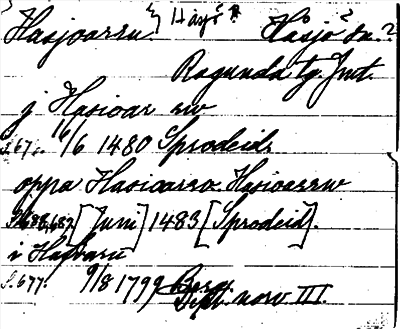 Hasjoarru? Hays? Håsjö sn?
Ragunda tg. Jmt.
j Hasioar nw
S.671. 16/6 1480 Sprodeid.
oppa Hasioarro Hasioarrw
[Juni] 1483 [Sprodeid].
i Hafharu
S.677. 9/8 1799
Dipl. norv III.